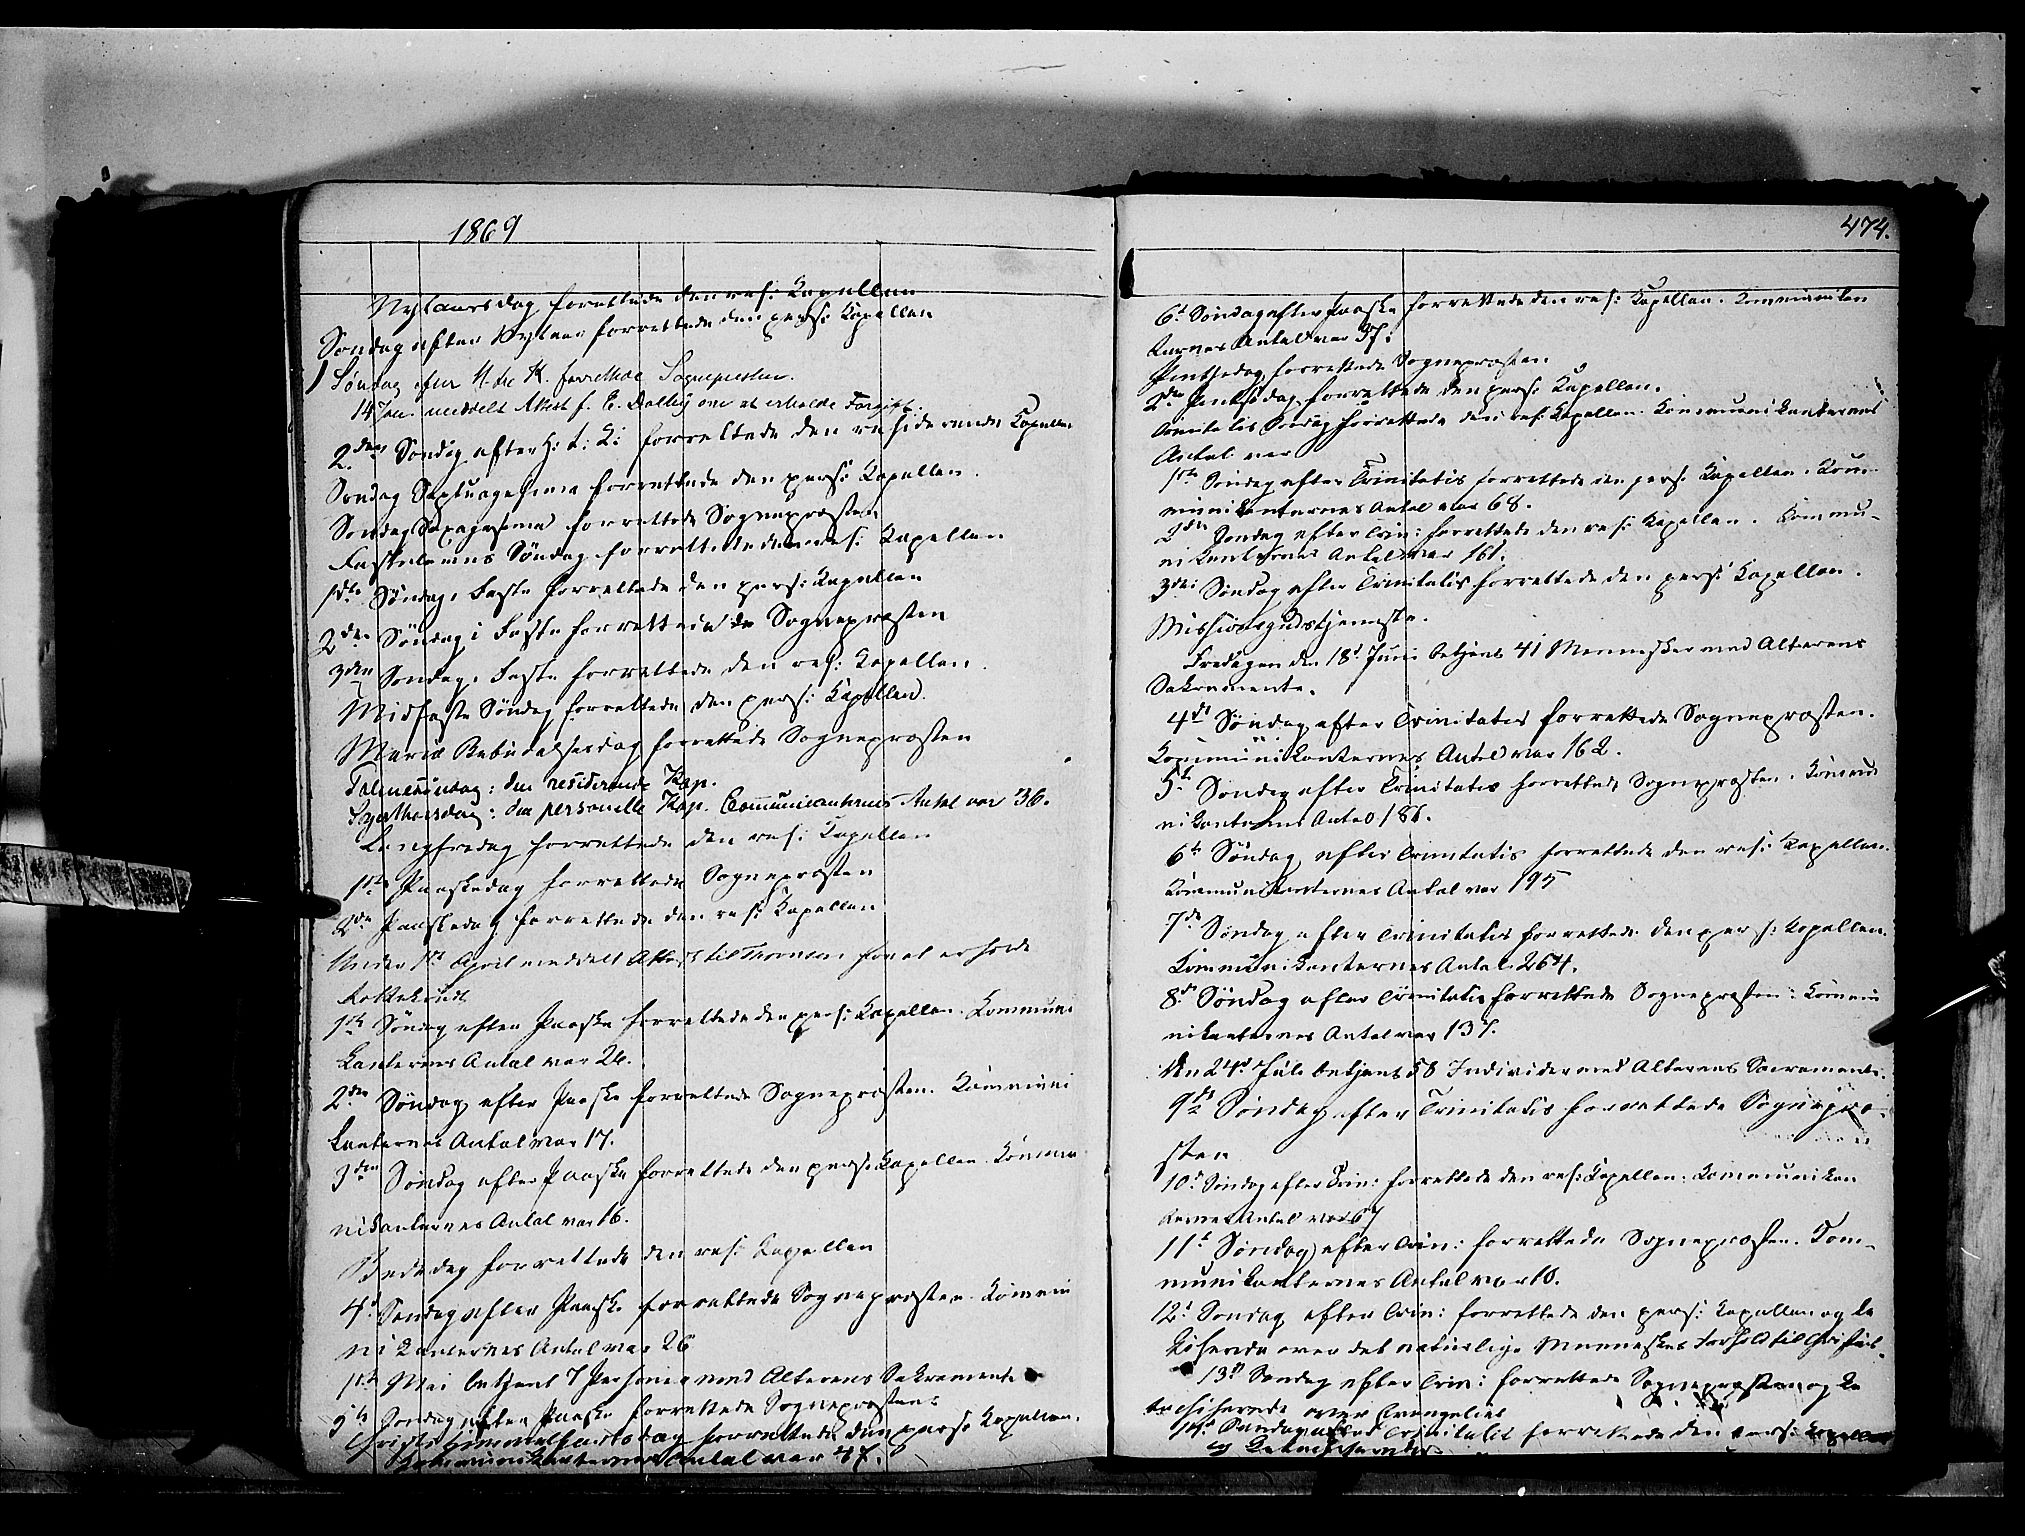 1869
Nytaarsdag forrettede den res: Kapellan
Søndag efter Nytaar forrettede den pers: Kapellan
1 Søndag efter H. tre K. forrettede Sognepresten.
14 Jan. meddelt Attest f. E. Dalby om at erholde Forgift.
2den Søndag efter H: t: K: forrettede den residerende Kapellan
Søndag Septuagesima forrettede den pers: Kapellan.
Søndag Sexagesima forrettede Sognepræsten
Fastelavns Søndag forrettede den res: Kapellan
1ste Søndag i Faste forrettede den pers: Kapellan
2den Søndag i Faste forrettede Sognepræsten
3den Søndag i Faste forrettede den res: Kapellan.
Midfaste Søndag forrettede den pers: Kapellan.
Mariæ Bebudelsesdag forrettede Sognepræsten
Palmesøndag: den residerende Kap.
Skjærthorsdag: den personelle Kap. Communicanternes Antal var 36.
Langfredag forrettede den res: Kapellan
1ste Paaskedag forrettede Sognepræsten
2den Paaskedag forrettede den res: Kapellan
Under 1ste April meddelt Attest til Thomesen for at erholde
Rottekrudt
1ste Søndag efter Paaske forrettede den pers: Kapellan. Kommuni
kanternes Antal var 26.
2den Søndag efter Paaske forrettede Sognepræsten. Kommuni
kanternes Antal var 17.
3den Søndag efter Paaske forrettede den pers: Kapellan. Kommu
nikanternes Antal var 16.
Bededag forrettede den res: Kapellan
4de Søndag efter Paaske forrettede Sognepræsten. Kommu
nikanternes Antal var 26
1ste Mai betjent 7 Personer med Alterens Sakramente
5te Søndag efter Paaske forrettede Sognepræsten
Christi Himmelfartsdag forrettede den pers: Kapellan.
Kommunikanternes Antal var 47.
474.
6te Søndag efter Paaske forrettede den res: Kapellan. Kommunikan
ternes Antal var 37.
Pintsedag forrettede Sognepræsten.
2den Pintsedag forrettede den pers: Kapellan.
Trinitatis Søndag forrettede den res: Kapellan. Kommunikanternes
Antal var
1ste Søndag efter Trinitatis forrettede den pers: Kapellan. Kom-
munikanternes Antal var 68.
2den Søndag efter Trin: forrettede den res: Kapellan. Kommu-
nikanternes Antal var 161.
3die Søndag efter Trinitatis forrettede den pers: Kapellan.
Missionsgudstjeneste.
Fredagen den 18de Juni betjent 41 Mennesker med Alterens
Sakramente.
4de Søndag efter Trinitatis forrettede Sognepræsten.
Kommunikanternes Antal var 162.
5te Søndag efter Trinitatis forrettede Sognepræsten. Kommu
nikanternes Antal 186.
6te Søndag efter Trinitatis forrettede den res: Kapellan.
Kommunikanternes Antal var 195
7de Søndag efter Trinitatis forrettede den pers: Kapellan.
Kommunikanternes Antal 264.
8de Søndag efter Trinitatis forrettede Sognepræsten. Kommu
nikanternes Antal var 137.
Den 24de Juli betjent 58 Individer med Alterens Sacramente.
9de Søndag efter Trinitatis forrettede Sognepræ-
sten
10de Søndag efter Trin: forrettede den res: Kapellan. Kommunikan
ternes Antal var 67
11te Søndag efter Trin: forrettede Sognepræsten. Kom-
munikanternes Antal var 10.
12te Søndag efter Trin: forrettede den pers: Kapellan og ka
kiserede over det naturlige Menneskes Forhold til Christus.
13de Søndag efter Trin: forrettede Sognepræsten og ka
techiserede over Evangeliet
14de Søndag efter Trinitatis forrettede den pers: Kapellan
og katechiserede